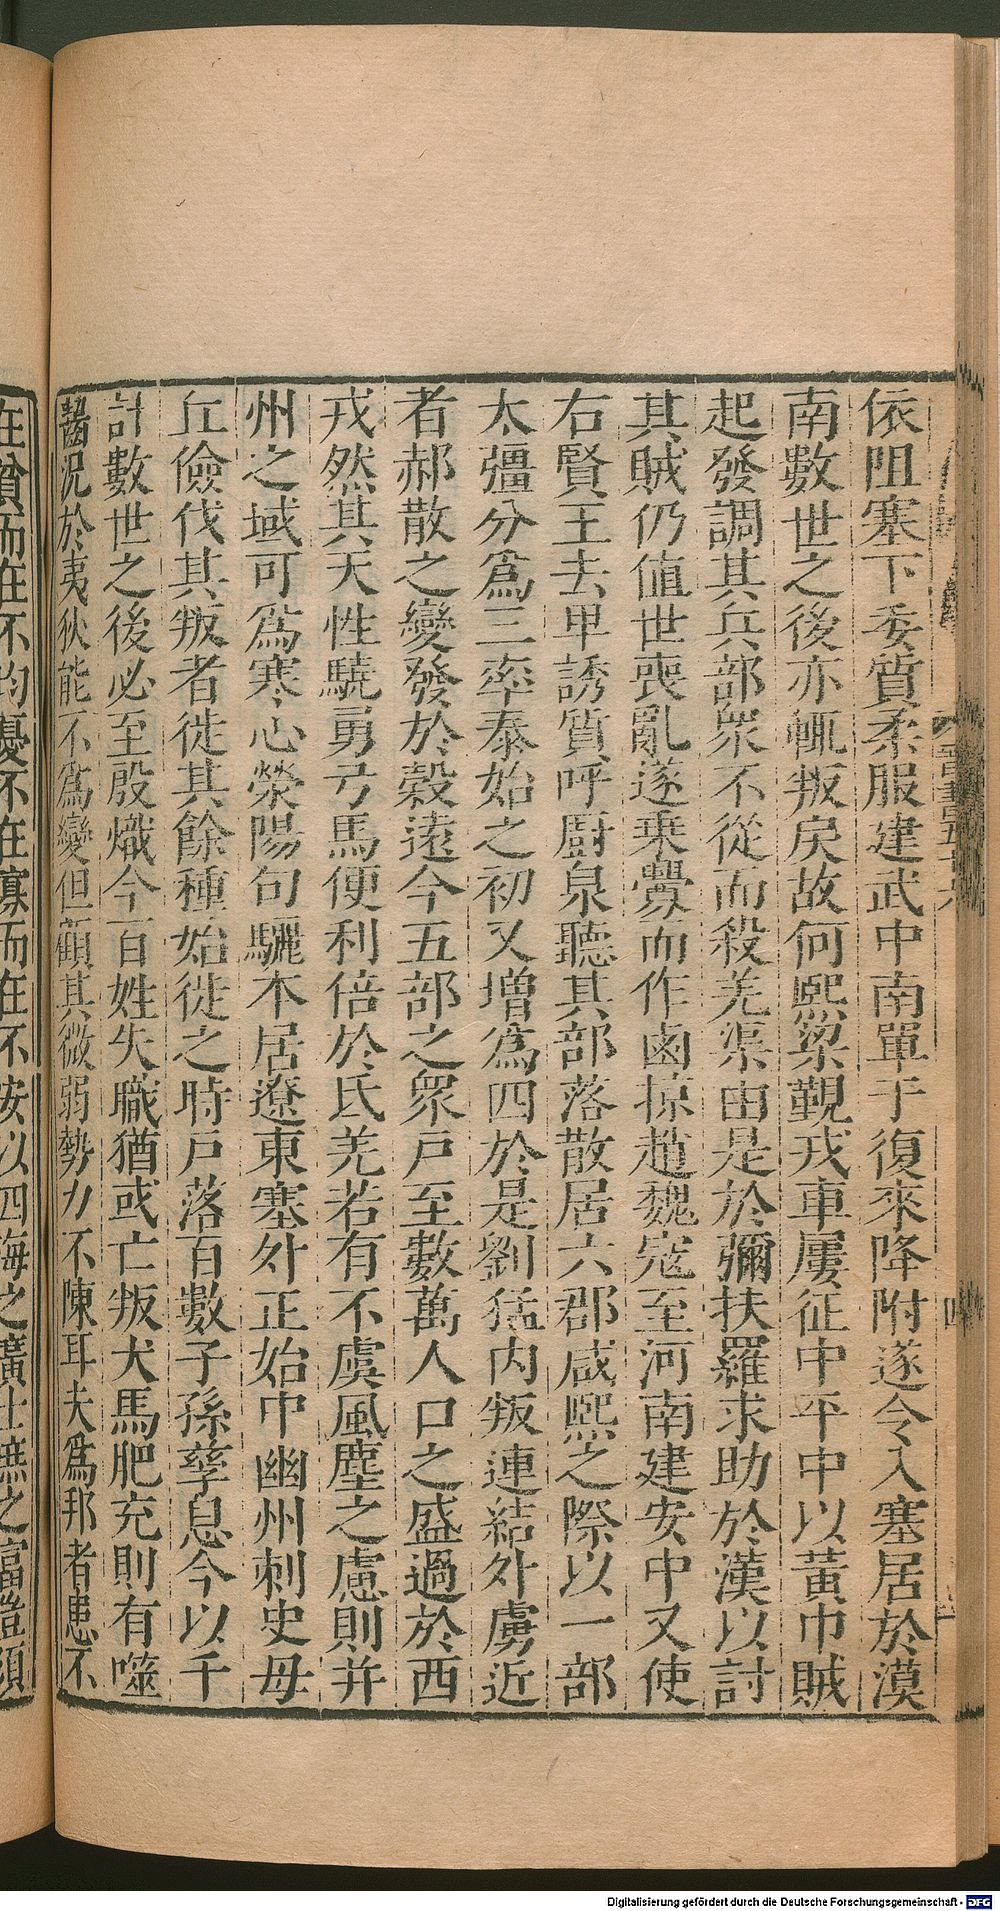 依阻塞下委質柔服建武中南單于復來降附遂令入塞居於漠
南數世之後亦輒叛戾故何熙梁覲戎車屢征中平中以黃巾賊
起發調其兵部眾不從而殺羌渠由是於彌扶羅求助於漢以討
其賊仍值世喪亂遂乗釁而作鹵掠趙魏寇至河南建安中又使
右賢王去卑誘質呼廚泉聽其部落散居六郡咸熙之際以一部
太彊分爲三率泰始之初又增爲四於是劉猛內叛連結外虜近
者郝散之變發於穀遠今五部之眾戶至數萬人口之盛過於西
戎然其天性驍勇弓馬便利倍於氐羌若有不虞風塵之慮則并
州之域可爲寒心滎陽句驪本居遼東塞外正始中幽州刺史毋
丘儉伐其叛者徙其餘種始徙之時戶落百數子孫孳息今以千
計數世之後必至殷熾今百姓失職猶或亡叛犬馬肥充則有噬
齧況於夷狄能不爲變但顧其微弱勢力不陳耳夫爲邦者患不
在貧而在不均憂不在寡而在不安以四海之廣士庶之富豈須
晉書五十六
四
Digitalisierung gefördert durch die Deutsche Forschungsgemeinschaft - DFG